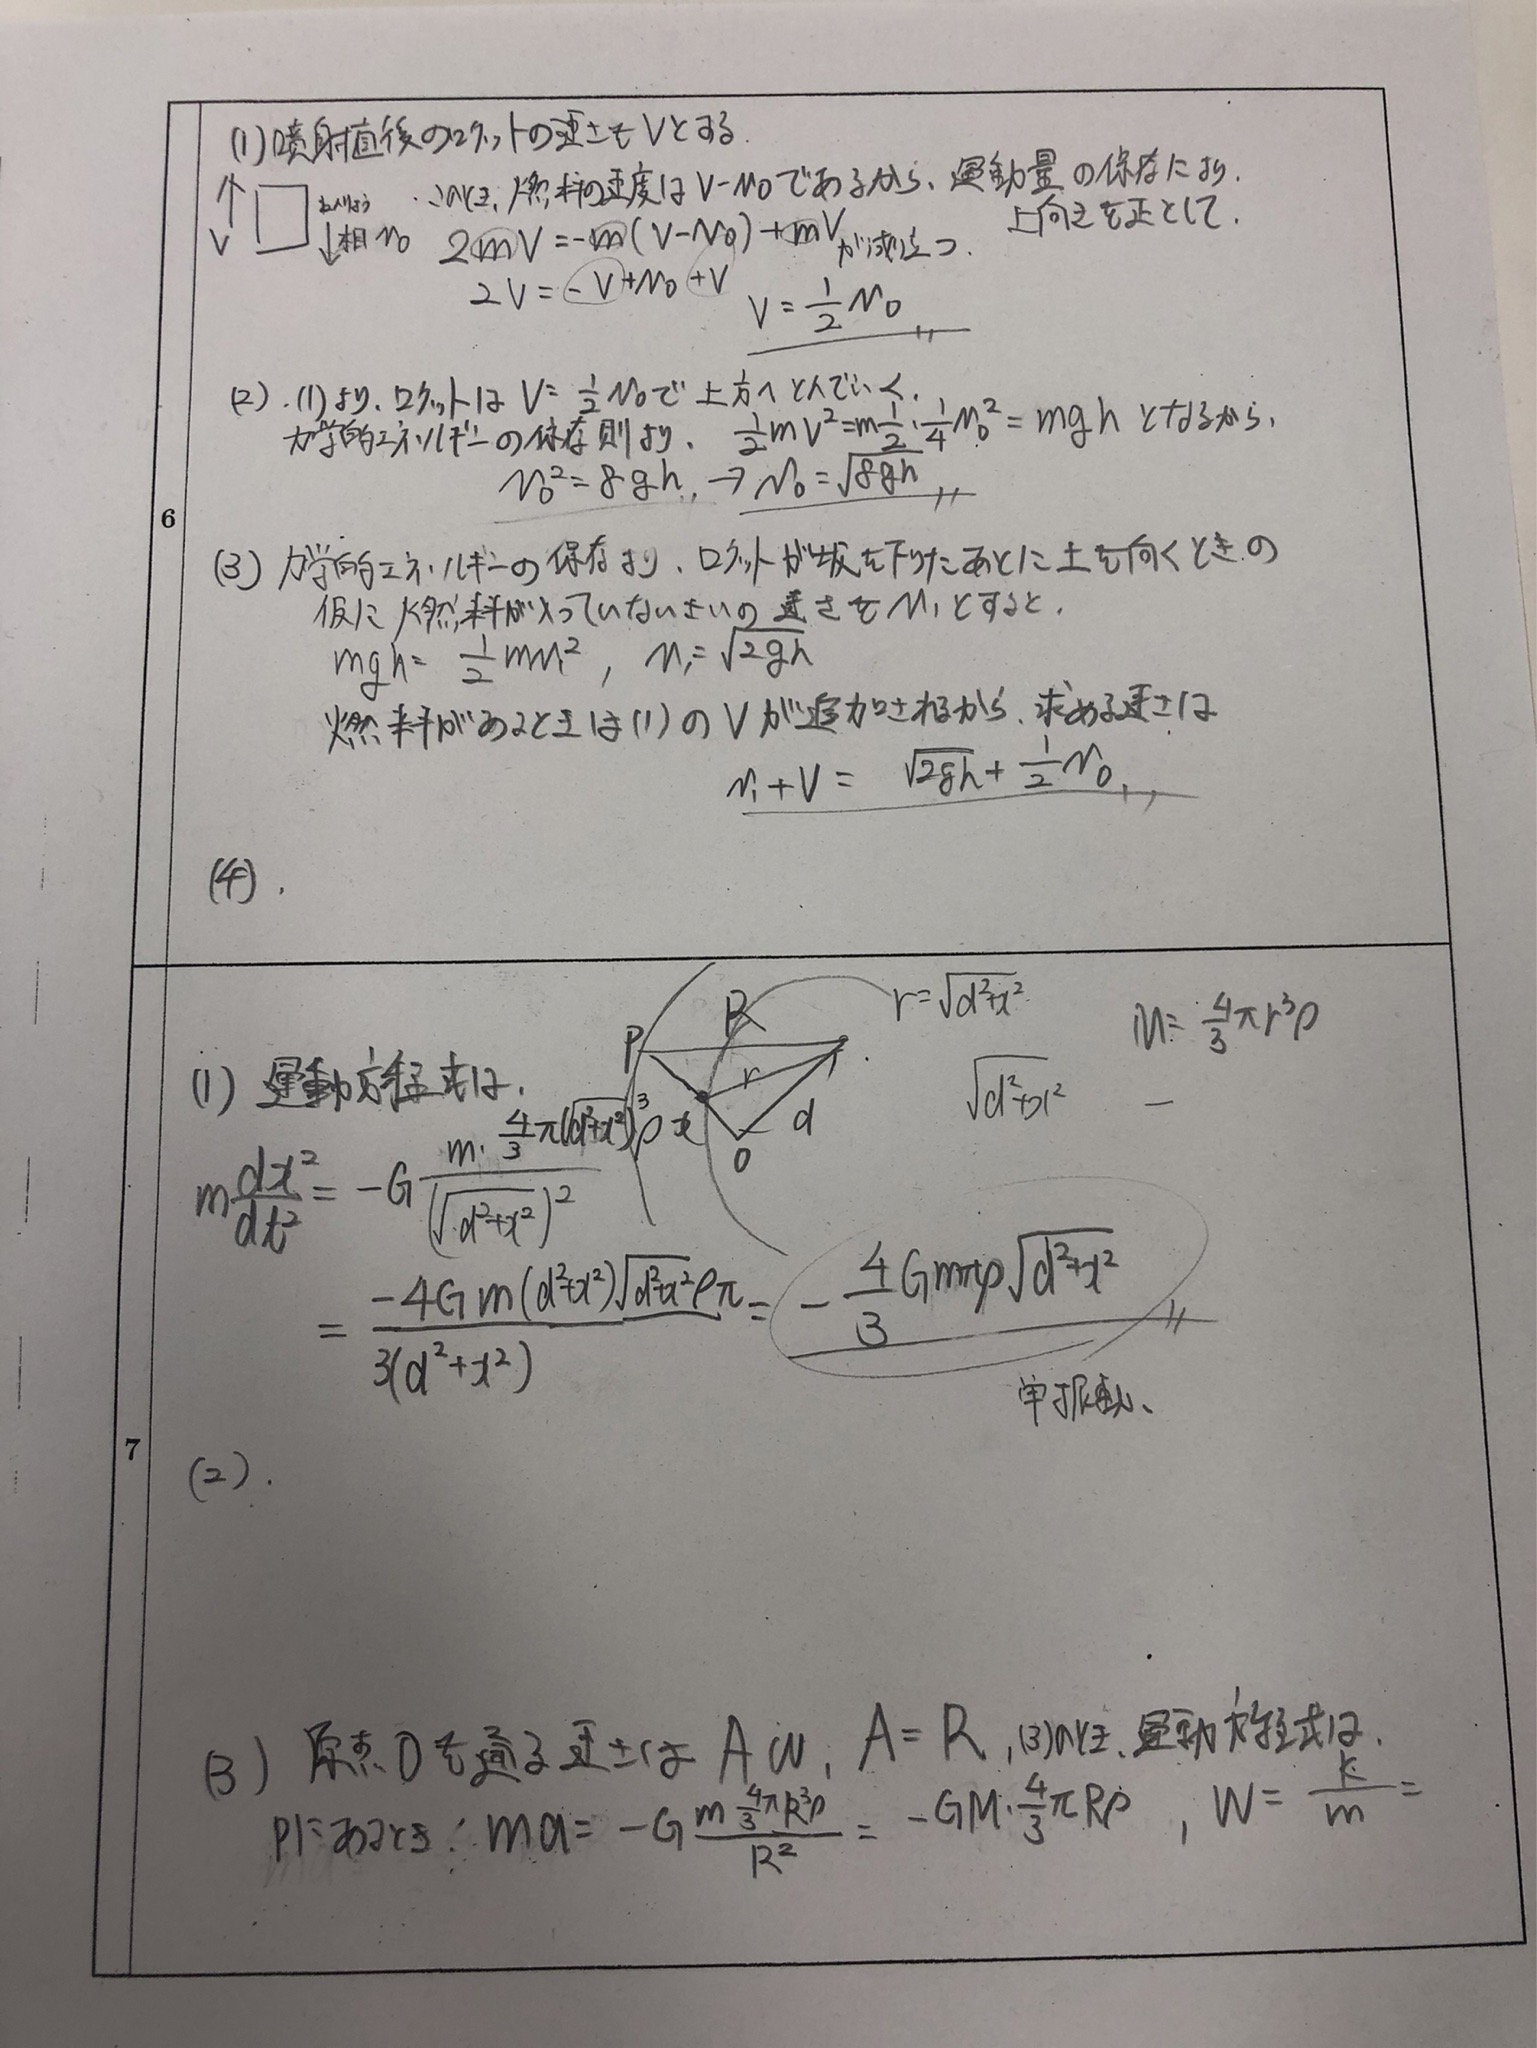 6
(1) 噴射直後のロケットの速さをVとする.
V
相 v₀
このとき、燃料の速度はV-v₀であるから、運動量の保存により.
上向きを正として.
2mV = -m(V-v₀)+mV が成立つ.
2V = -V+v₀+V
V = 1/2 v₀
(2). (1)より、ロケットは V = 1/2 v₀で上方へとんでいく.
力学的エネルギーの保存則より、 1/2 mV² = m 1/2・1/4 v₀² = mgh となるから、
v₀² = 8gh, → v₀ = √8gh
(3) 力学的エネルギーの保存より、ロケットが坂を下りたあとに土を向くときの
仮に燃料が入っていないさいの速さをv₁とすると.
mgh = 1/2 mv₁², v₁ = √2gh
燃料があるときは(1)のVが追加されるから、求める速さは
v₁+V = √2gh + 1/2 v₀
(4).
7
P
R
r
x
d
O
r = √d²+x²
M = 4/3 πr³ρ
√d²+x² −
(1) 運動方程式は、
m dx²/dt² = -G m・4/3 π(√d²+x²)³ρ / (√d²+x²)²
= -4Gm(d²+x²)√d²+x² ρπ / 3(d²+x²) = - 4/3 Gmπρ√d²+x²
単振動、
(2).
(3) 原点Oを通る速さは Aω, A = R, (3)のとき、運動方程式は、
Pにあるとき: ma = -G m 4/3 πR³ρ / R² = -GM・4/3 πRρ , ω = k/m =